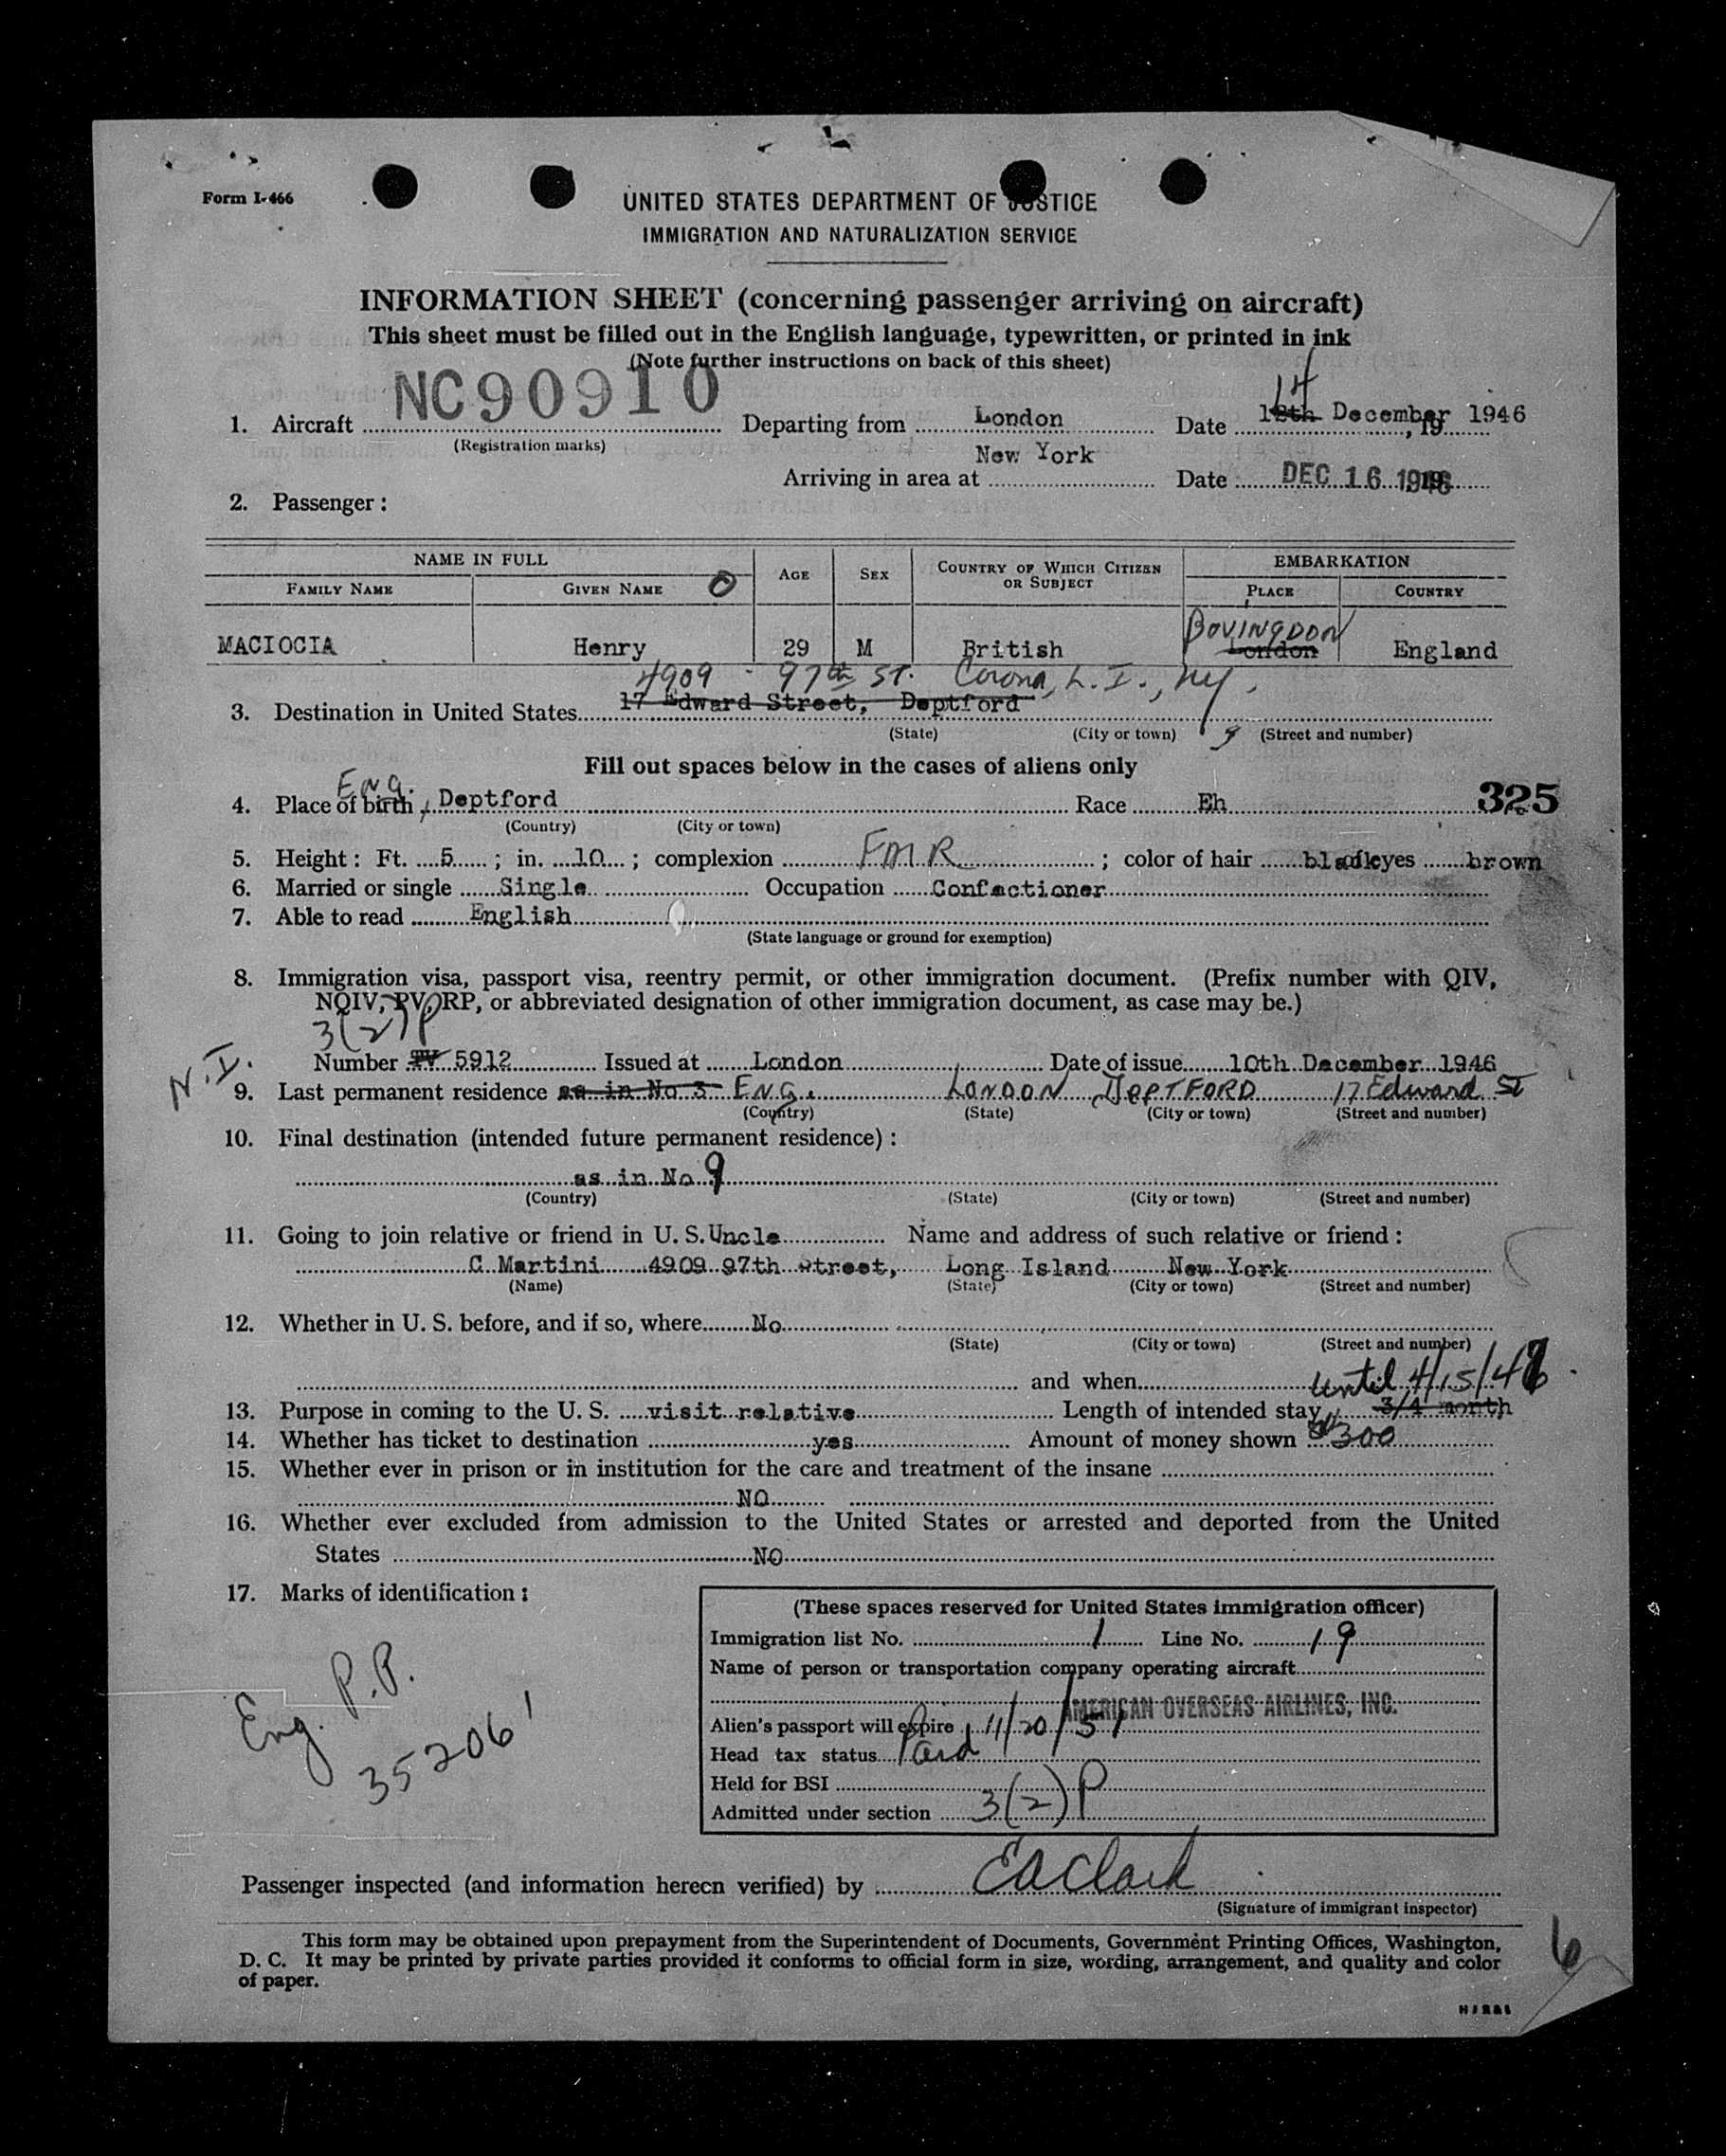 Form I-466
UNITED STATES DEPARTMENT OF JUSTICE
IMMIGRATION AND NATURALIZATION SERVICE
INFORMATION SHEET (concerning passenger arriving on aircraft)
This sheet must be filled out in the English language, typewritten, or printed in ink
(Note further instructions on back of this sheet)
1. Aircraft NC90910 Departing from London Date 12th 14 December 1946, 19
(Registration marks)
Arriving in area at New York Date DEC 16 1946
2. Passenger:
NAME IN FULL AGE SEX COUNTRY OF WHICH CITIZEN OR SUBJECT EMBARKATION
FAMILY NAME GIVEN NAME PLACE COUNTRY
MACIOCIA Henry 29 M British BOVINGDON London England
4909 - 97th ST. Corona, L. I., NY.
3. Destination in United States 17 Edward Street, Deptford
(State) (City or town) (Street and number)
Fill out spaces below in the cases of aliens only
ENG.
4. Place of birth, Deptford Race Eh 325
(Country) (City or town)
5. Height: Ft. 5; in. 10; complexion FAIR; color of hair black of eyes brown
6. Married or single Single Occupation Confectioner
7. Able to read English
(State language or ground for exemption)
8. Immigration visa, passport visa, reentry permit, or other immigration document. (Prefix number with QIV,
NQIV, PV, RP, or abbreviated designation of other immigration document, as case may be.)
3(2)P
N.I.
Number TV 5912 Issued at London Date of issue 10th December 1946
9. Last permanent residence as in No 3 ENG. LONDON DEPTFORD 17 Edward St
(Country) (State) (City or town) (Street and number)
10. Final destination (intended future permanent residence):
as in No 9
(Country) (State) (City or town) (Street and number)
11. Going to join relative or friend in U. S. Uncle Name and address of such relative or friend:
C Martini 4909 97th Street, Long Island New York
(Name) (State) (City or town) (Street and number)
12. Whether in U. S. before, and if so, where No
(State) (City or town) (Street and number)
and when until 4/15/47
13. Purpose in coming to the U. S. visit relative Length of intended stay 3/4 month
14. Whether has ticket to destination yes Amount of money shown $300
15. Whether ever in prison or in institution for the care and treatment of the insane
NO
16. Whether ever excluded from admission to the United States or arrested and deported from the United
States NO
17. Marks of identification:
Eng. P.P.
352061
(These spaces reserved for United States immigration officer)
Immigration list No. 1 Line No. 19
Name of person or transportation company operating aircraft
AMERICAN OVERSEAS AIRLINES, INC.
Alien's passport will expire 11/20/51
Head tax status Paid
Held for BSI
Admitted under section 3(2)P
Passenger inspected (and information hereon verified) by EA Clark
(Signature of immigrant inspector)
This form may be obtained upon prepayment from the Superintendent of Documents, Government Printing Offices, Washington,
D. C. It may be printed by private parties provided it conforms to official form in size, wording, arrangement, and quality and color
of paper.
6